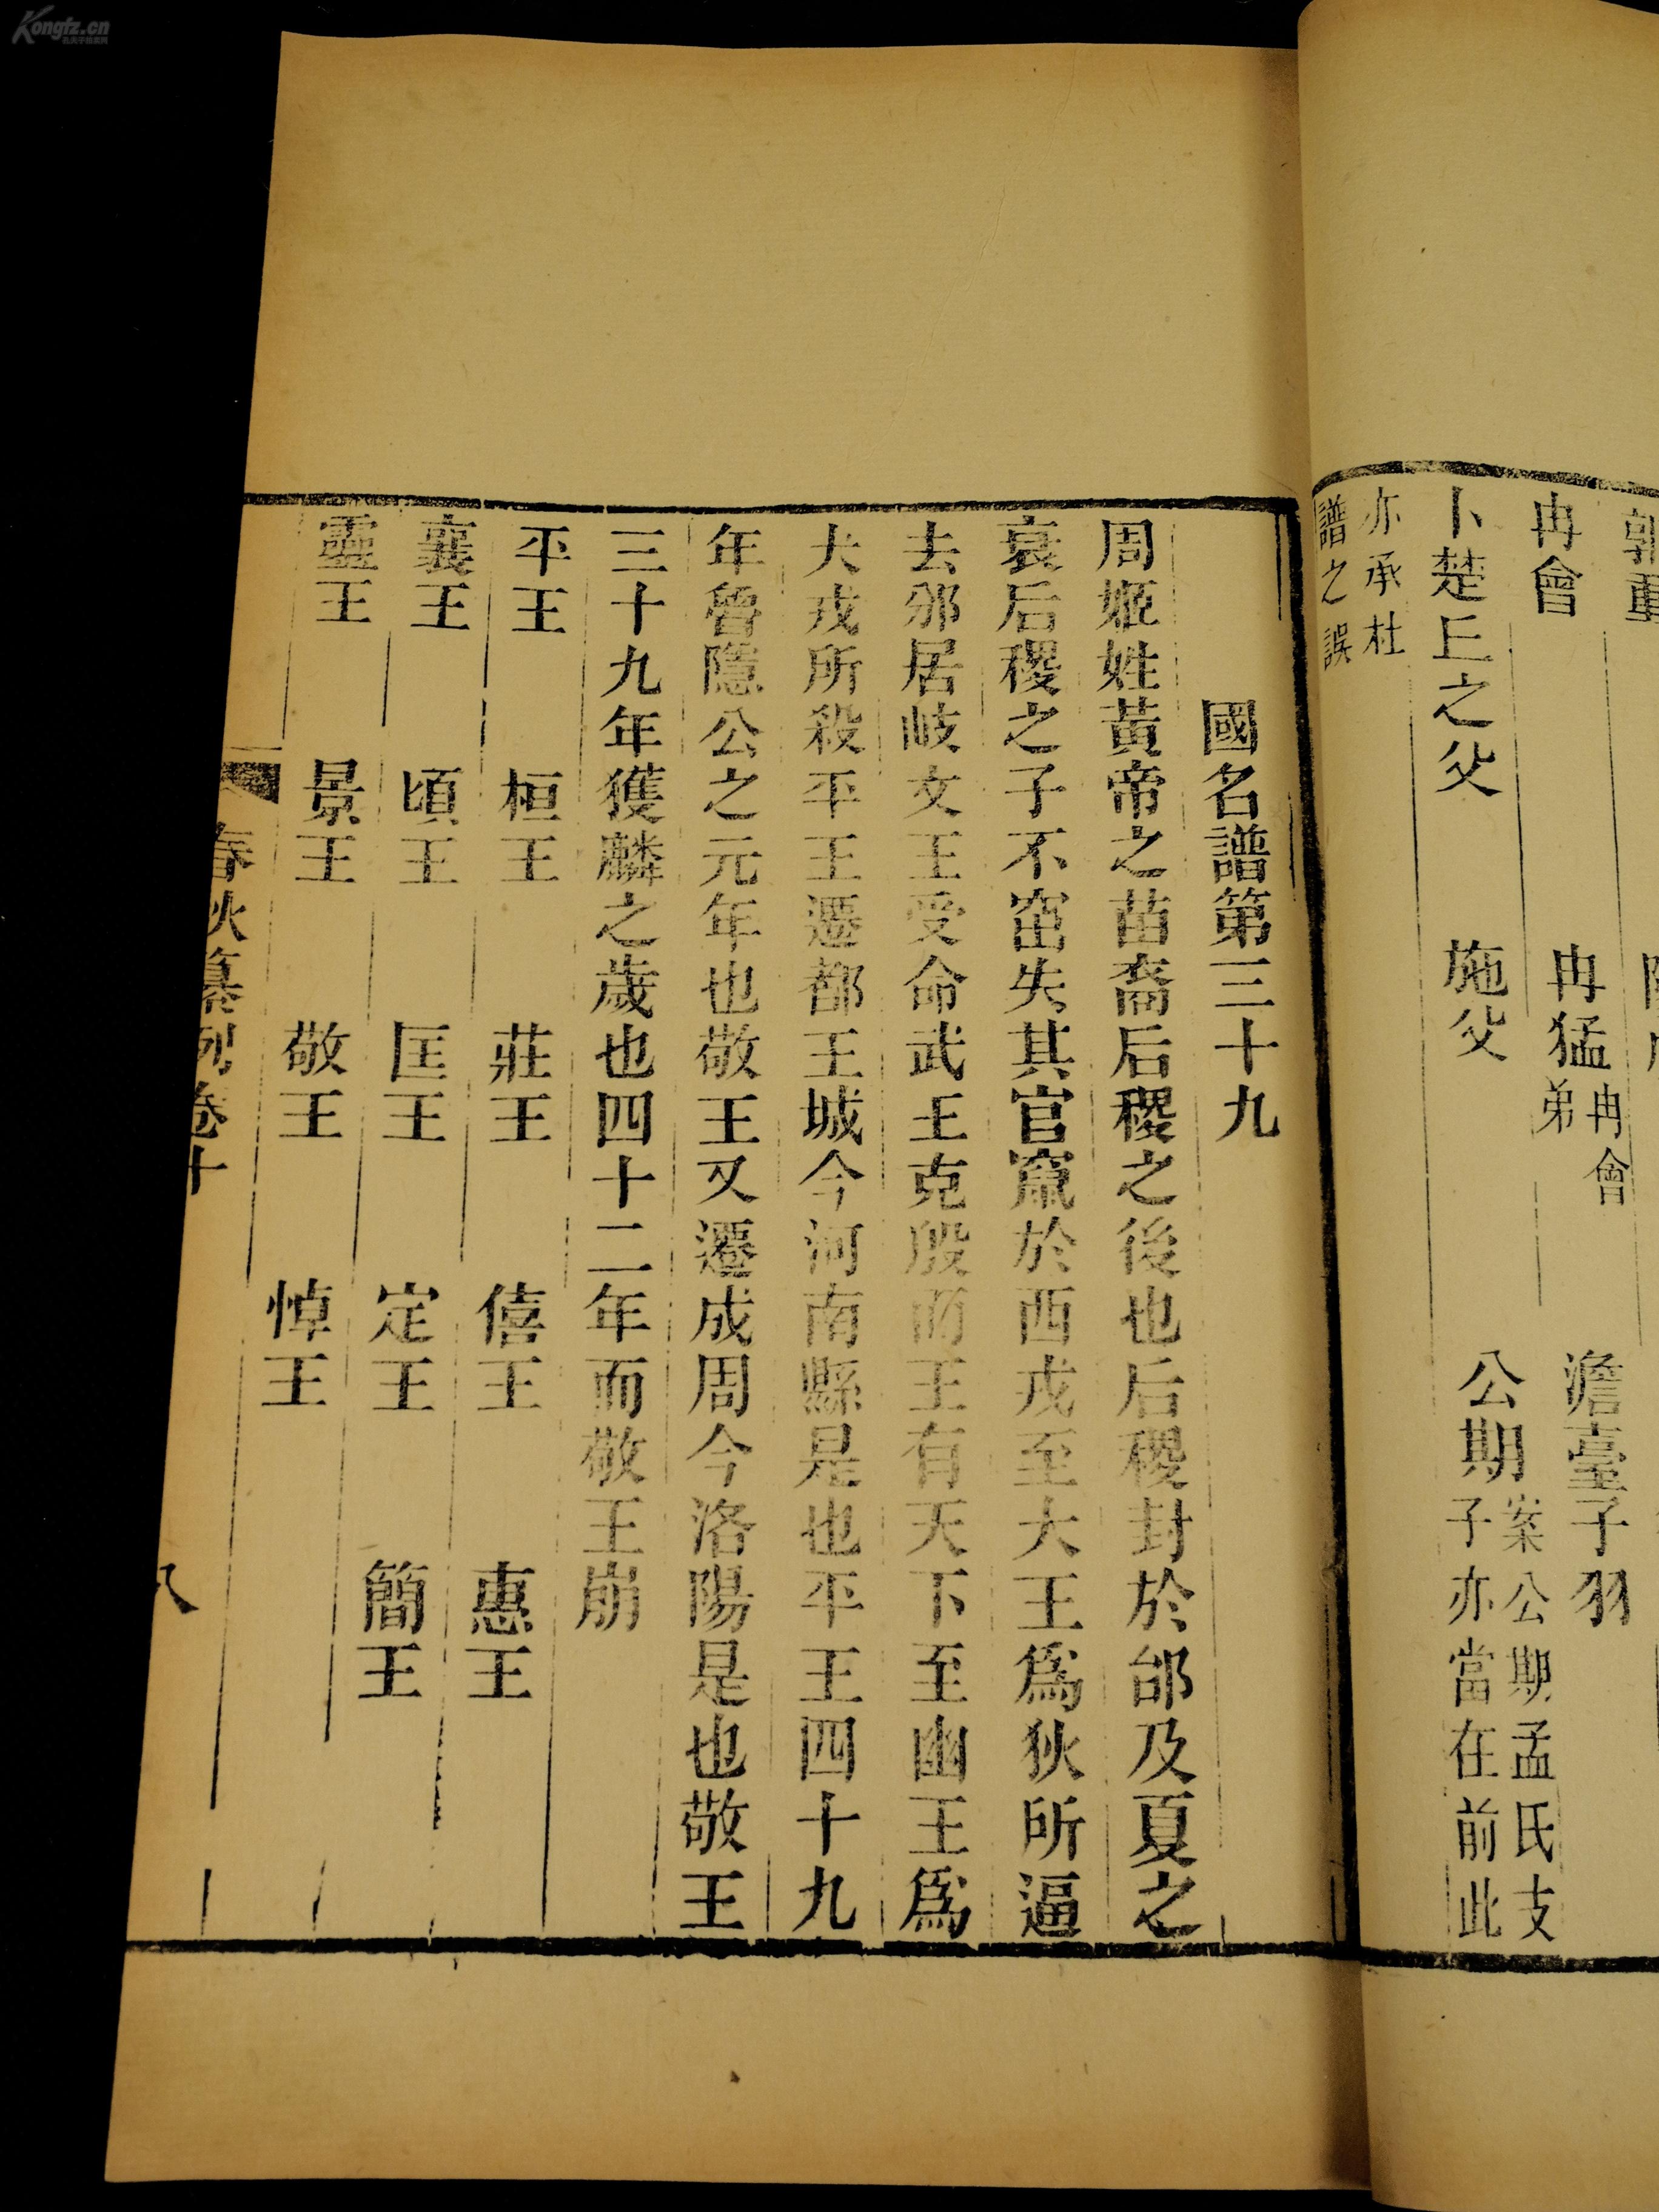 Kongfz.cn
郭重
冉會
冉猛 冉會弟
澹臺子羽
卜楚丘之父
施父
公期 案公期孟氏支子亦當在前此
亦承杜
譜之誤
國名譜第三十九
周姬姓黃帝之苗裔后稷之後也后稷封於邰及夏之
衰后稷之子不窋失其官竄於西戎至大王爲狄所逼
去邠居岐文王受命武王克殷而王有天下至幽王爲
犬戎所殺平王遷都王城今河南縣是也平王四十九
年魯隱公之元年也敬王又遷成周今洛陽是也敬王
三十九年獲麟之歲也四十二年而敬王崩
平王 桓王 莊王 僖王 惠王
襄王 頃王 匡王 定王 簡王
靈王 景王 敬王 悼王
春秋纂例卷十
八